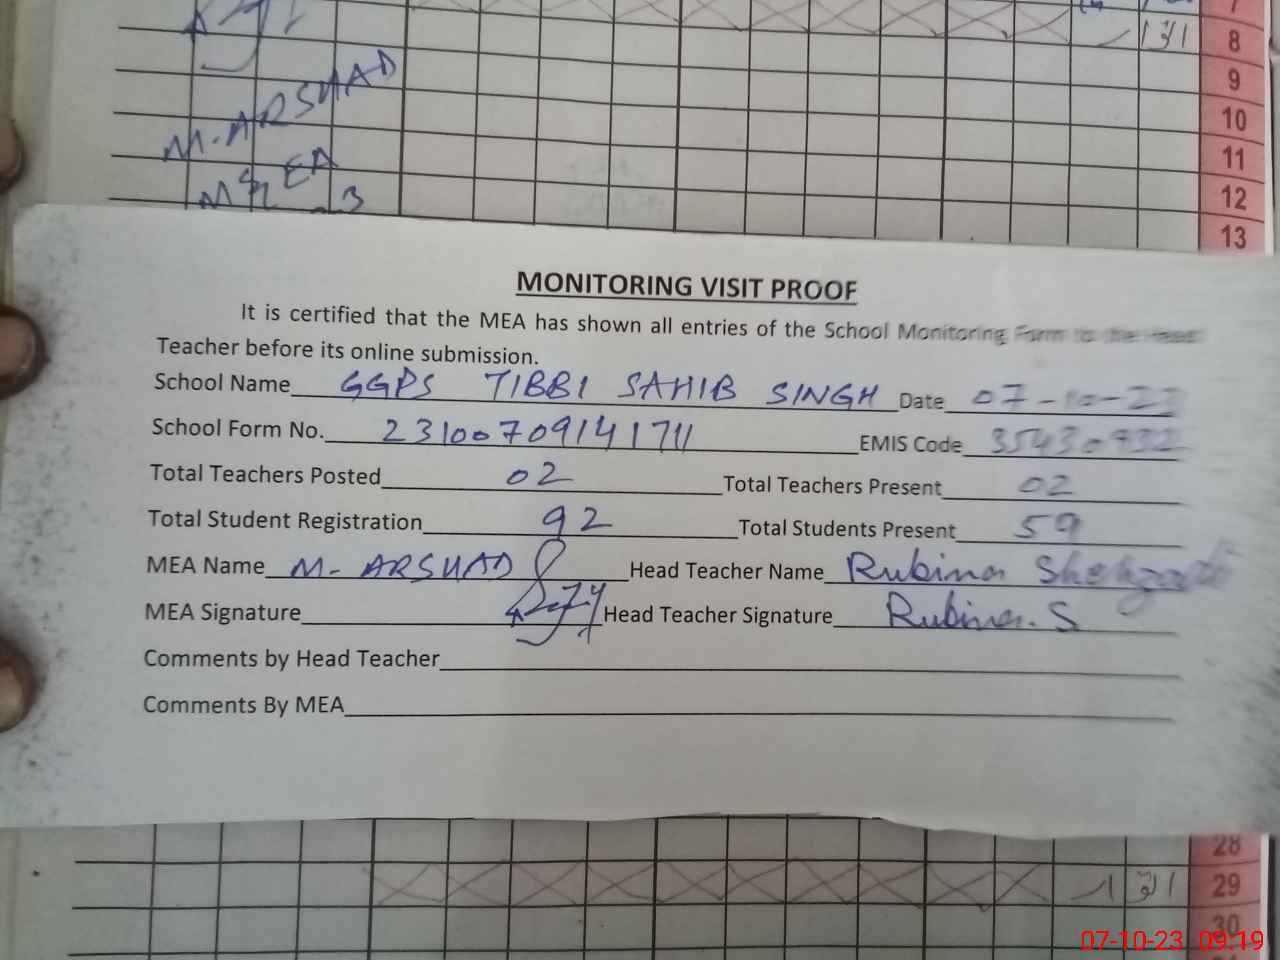 7
8 اتوار
9
10
11
12
13
M. ARSHAD
MEA
MONITORING VISIT PROOF
It is certified that the MEA has shown all entries of the School Monitoring Form to the Head
Teacher before its online submission.
School Name GGPS TIBBI SAHIB SINGH Date 07-10-23
School Form No. 23100709141711 EMIS Code 35430932
Total Teachers Posted 02 Total Teachers Present 02
Total Student Registration 92 Total Students Present 59
MEA Name M- ARSHAD Head Teacher Name Rubina Shahzadi
MEA Signature Head Teacher Signature Rubina. S
Comments by Head Teacher
Comments By MEA
28
29 اتوار
30
07-10-23 09:19